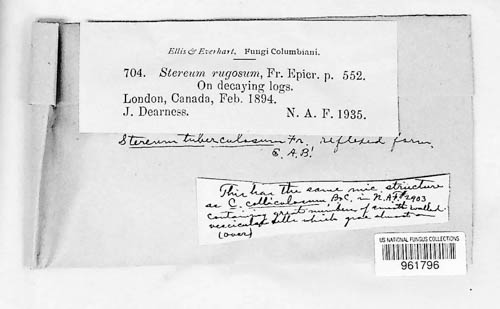 Ellis & Everhart, Fungi Columbiani.
704. Stereum rugosum, Fr. Epicr. p. 552.
On decaying logs.
London, Canada, Feb. 1894.
J. Dearness. N. A. F. 1935.
Stereum tuberculosum Fr., reflexed form
E. A. B.
This has the same mic. structure
as C. colliculosum B&C. in N.A.F. 2903
containing great numbers of smooth walled
vesicular cells which
(over)
US NATIONAL FUNGUS COLLECTIONS
961796